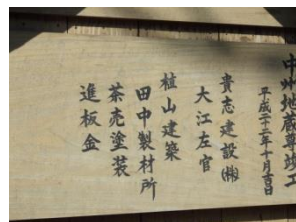 中州地蔵尊竣工
平成二十二年十月吉日
貴志建設㈱
大江左官
植山建築
田中製材所
茶売塗装
進板金